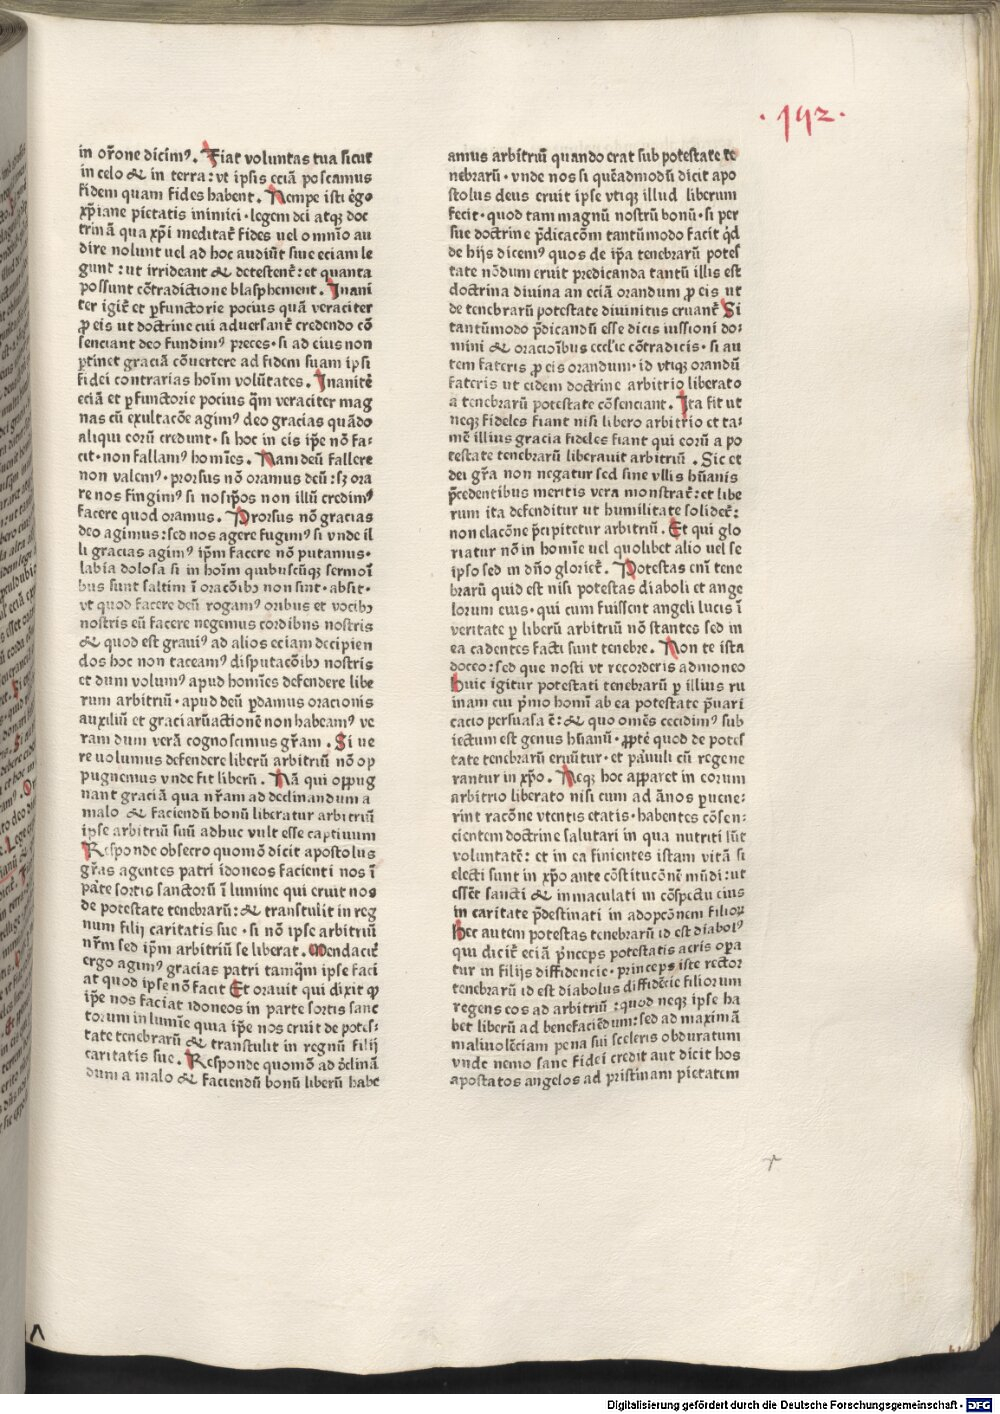 ·192·
in or̄one dicimꝰ. Fiat voluntas tua sicut
in celo & in terra: vt ipsis eciā poscamus
fidem quam fides habent. Nempe isti ergo
xp̄iane pietatis inimici· legem dei atqꝫ doc
trinā qua xp̄i meditat̄ fides uel omnīo au
dire nolunt uel ad hoc audiūt siue eciam le
gunt: ut irrideant & detestent̄: et quanta
possunt cōtradictione blasphement. Inani
ter igit̄ et ꝑfunctorie pocius quā veraciter
ꝓ eis ut doctrine cui aduersant̄ credendo cō
senciant deo fundimꝰ preces· si ad eius non
ꝑtinet graciā cōuertere ad fidem suam ipsi
fidei contrarias hoīm volūtates. Inanit̄
eciā et ꝑfunctorie pocius q̄m veraciter mag
nas cū exultacōe agimꝰ deo gracias quādo
aliqui eorū credunt· si hoc in eis ip̄e nō fa-
cit· non fallamꝰ homīes. Nam deū fallere
non valemꝰ· prorsus nō oramus deū: sꝫ ora
re nos fingimꝰ si nosip̄os non illū credimꝰ
facere quod oramus. Prorsus nō gracias
deo agimus: sed nos agere fugimꝰ si vnde il
li gracias agimꝰ ip̄m facere nō putamus·
labia dolosa si in hoīm quibuscūqꝫ sermoī
bus sunt saltim ī oracōibꝫ non sint· absit·
vt quod facere deū rogamꝰ oribus et vocibꝫ
nostris eū facere negemus cordibns nostris
& quod est grauiꝰ ad alios eciam decipien
dos hoc non taceamꝰ disputacōibꝫ nostris
et dum volumꝰ apud homīes defendere libe
rum arbitriū· apud deū ꝑdamus oracionis
auxiliū et graciarūactionē non habeamꝰ ve
ram dum verā cognoscimus gr̄am. Si ue
re uolumus defendere liberū arbitriū nō op
pugnemus vnde fit liberū. Nā qui oppug
nant graciā qua nr̄am ad declinandum a
malo & faciendū bonū liberatur arbitriū
ipse arbitriū suū adhuc vult esse captiuum
Responde obsecro quomō dicit apostolus
gr̄as agentes patri idoneos facienti nos ī
parte sortis sanctorū ī lumine qui eruit nos
de potestate tenebrarū: & transtulit in reg
num filij caritatis sue· si nō ipse arbitriū
nr̄m sed ip̄m arbitriū se liberat. Mendacit̄
ergo agimꝰ gracias patri tamq̄m ipse faci
at quod ipse nō facit Et orauit qui dixit ꝙ
ip̄e nos faciat idoneos in parte sortis sanc
torum in lumīe qua ip̄e nos eruit de potes-
tate tenebrarū & transtulit in regnū filij
caritatis sue. Responde quomō ad d̄clinā
dum a malo & faciendū bonū liberū habe
amus arbitriū quando erat sub potestate te
nebrarū· vnde nos si quēadmodū dicit apo
stolus deus eruit ipse vtiqꝫ illud liberum
fecit· quod tam magnū nostrū bonū· si per
sue doctrine p̄dicacōm tantūmodo facit q̄d
de hijs dicemꝰ quos de ip̄a tenebrarū potes
tate nōdum eruit predicanda tantū illis est
doctrina diuina an eciā orandum ꝓ eis ut
de tenebrarū potestate diuinitus eruant̄ Si
tantūmodo p̄dicandū esse dicis iussioni do-
mini & oracioībus eccl̄ie cōtradicis· si au
tem fateris ꝓ eis orandum· id vtiqꝫ orandū
fateris ut eidem doctrine arbitrio liberato
a tenebrarū potestate cōsenciant. Ita fit ut
neqꝫ fideles fiant nisi libero arbitrio et ta-
mē illius gracia fideles fiant qui eorū a po
testate tenebrarū liberauit arbitriū. Sic et
dei gr̄a non negatur sed sine vllis hūanis
p̄cedentibus meritis vera monstrat̄: et libe
rum ita defenditur ut humilitate solidet̄:
non elacōne p̄cipitetur arbitriū. Et qui glo
riatur nō in homīe uel quolibet alio uel se
ipso sed in dn̄o gloriet̄. Potestas enī tene
brarū quid est nisi potestas diaboli et ange
lorum eius· qui cum fuissent angeli lucis ī
veritate ꝑ liberū arbitriū nō stantes sed in
ea cadentes facti sunt tenebre. Non te ista
doceo: sed que nosti vt recorderis admoneo
huic igitur potestati tenebrarū ꝑ illius ru
inam cui p̄mo homī ab ea potestate p̄uari
cacio persuasa ē: & quo omēs cecidimꝰ sub
iectum est genus hūanū· ꝓpt̄ quod de potes
tate tenebrarū eruūtur· et pauuli cū regene
rantur in xp̄o. Neqꝫ hoc apparet in eorum
arbitrio liberato nisi cum ad ānos ꝑuene-
rint racōne vtentis etatis· habentes cōsen-
cientem doctrine salutari in qua nutriti sūt
voluntatē: et in ea finientes istam vitā si
electi sunt in xp̄o ante cōstitucōnē mūdi: ut
essēt sancti & immaculati in cōspectu eius
in caritate p̄destinati in adopcōnem filioꝝ
hec autem potestas tenebrarū id est diabolꝰ
qui dicit̄ eciā p̄nceps potestatis aeris opa
tur in filijs diffidencie· princeps iste rector
tenebrarū id est diabolus diffidēcie filiorum
regens eos ad arbitriū: quod neqꝫ ipse ha
bet liberū ad benefaciēdum: sed ad maximā
maliuolēciam pena sui sceleris obduratum
vnde nemo sane fidei credit aut dicit hos
apostatos angelos ad pristinam pietatem
Digitalisierung gefördert durch die Deutsche Forschungsgemeinschaft - DFG